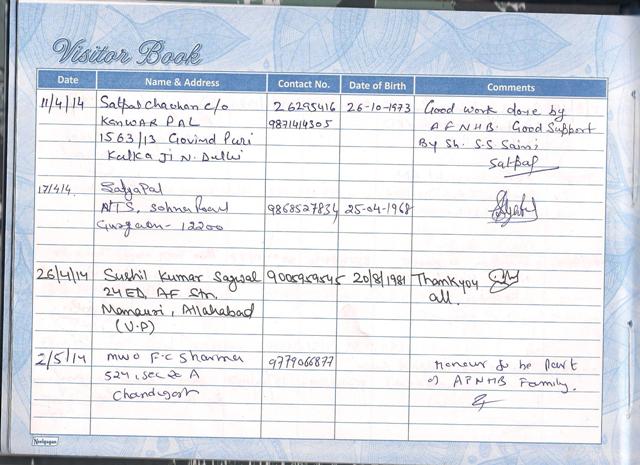 Visitor Book
Date Name & Address Contact No. Date of Birth Comments
11/4/14 Satpal Chauhan c/o 26295416 26-10-1973 Good work done by
KANWAR PAL 9871414305 AFNHB. Good Support
1563/13 Govind Puri By Sh. S.S Saini
Kalka Ji N. Delhi Satpal
17/4/14 SatyaPal
ATS, Sohna Road 9868527834 25-04-1968
Gurgaon - 12200
26/4/14 Sushil Kumar Sagwal 9005959545 20/8/1981 Thankyou
24 ED, AF Stn. all.
Manauri, Allahabad
(U.P)
2/5/14 MWO F.C Sharma 9779066877 Honour to be part
524, Sec 20 A of AFNHB Family.
Chandigarh
Neelgagan